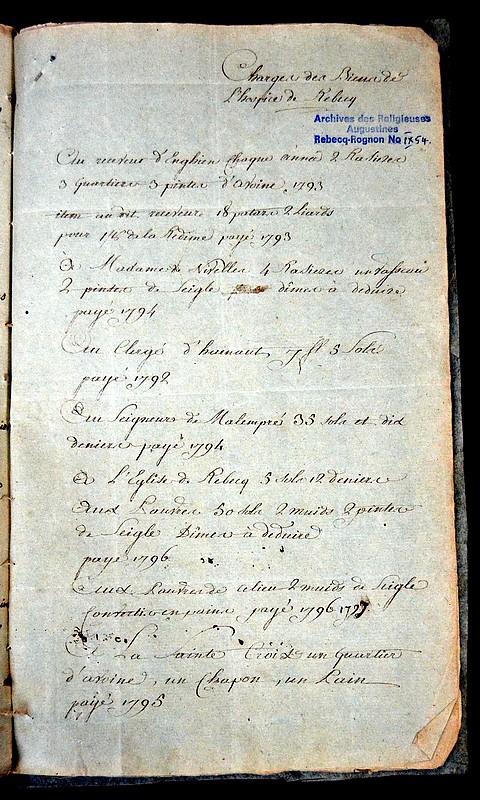 Charges des Biens de
L'hospice de Rebecq
Archives des Religieuses
Augustines
Rebecq-Rognon No IX 54.
Au receveur d'Enghien chaque année 2 Rasieres
3 quartiers 3 pintes d'avoine 1793
item au dit receveur 18 patars 2 liards
pour de la Redime payé 1793
à Madame de Nivelles 4 Rasieres un vasseau
2 pintes de Seigle dimes à deduire
payé 1794
Au Clergé d'hainaut 7 fl 5 Sols
payé 1792
Au Seigneur de Malempré 35 sols et dix
deniers payé 1794
à L'Eglise de Rebecq 5 sols 12 deniers
aux Pauvres 50 sols 2 muids 2 pintes
de Seigle Dimes à deduire
payé 1796
aux Pauvres de ce lieu 2 muids de Seigle
convertis en pains payé 1796 1797
à La Sainte Croix un quartier
d'avoine, un Chapon, un Pain
payé 1795